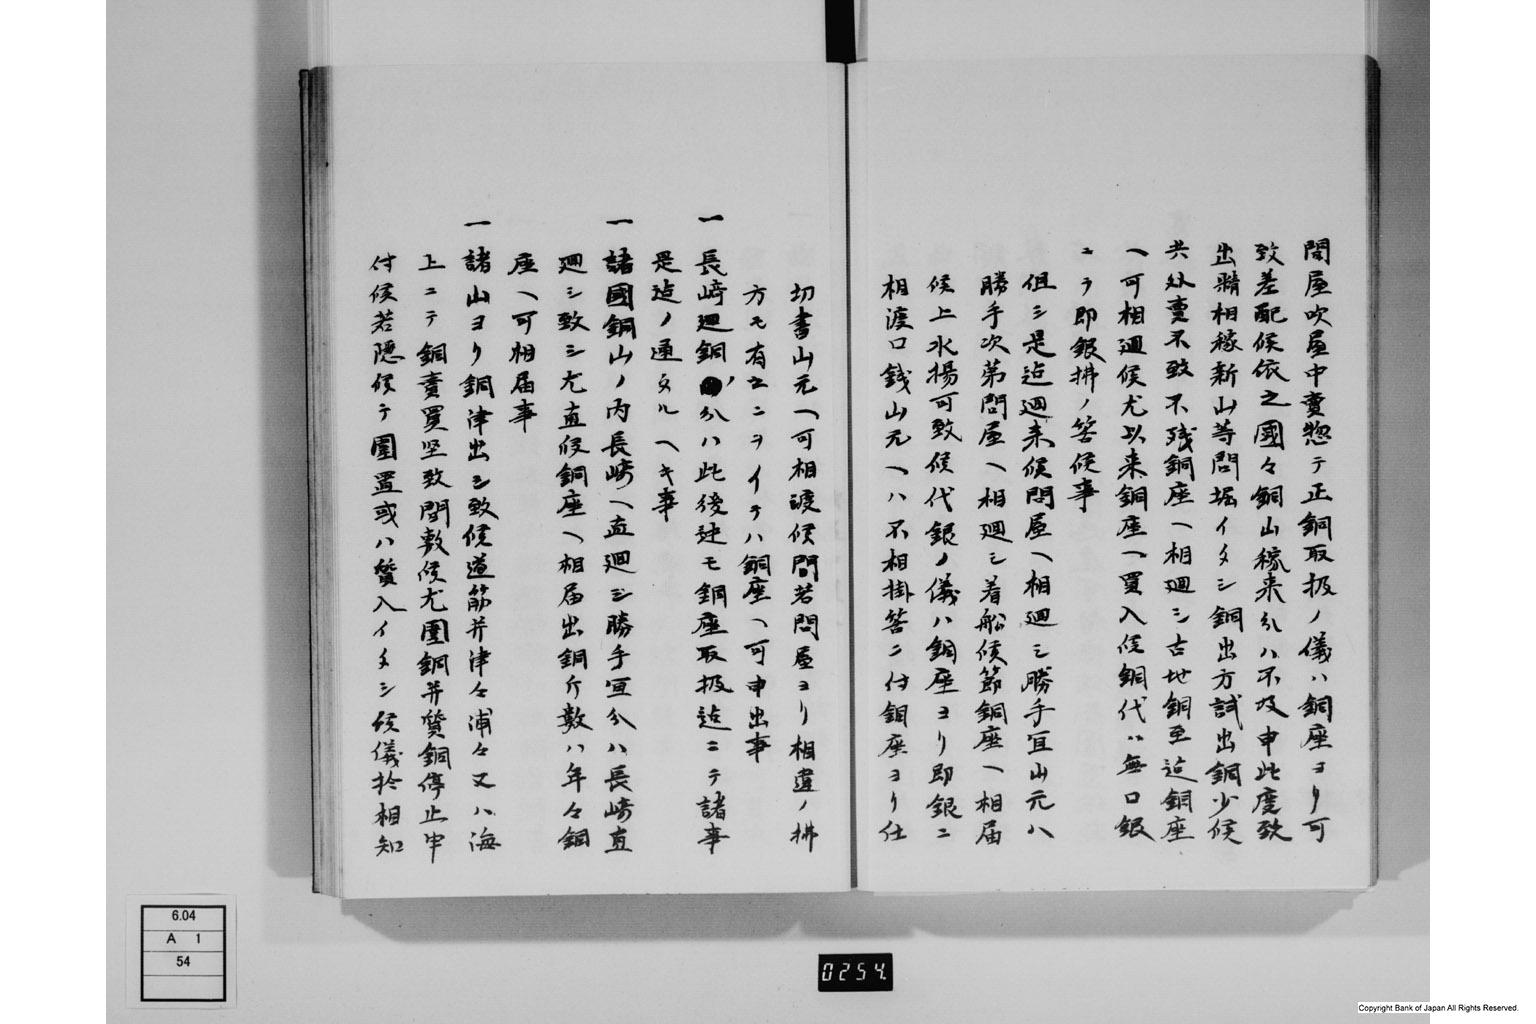 問屋吹屋中賣惣テ正銅取扱ノ儀ハ銅座ヨリ可
致差配候依之國々銅山稼来分ハ不及申此度致
出精相稼新山等問堀イタシ銅出方試出銅少候
共外賣不致不残銅座ヘ相廻シ古地銅至迠銅座
ヘ可相廻候尤以来銅座ヘ買入候銅代ハ無口銀
ニテ即銀拂ノ筈候事
但シ是迠廻来候問屋ヘ相廻シ勝手宜山元ハ
勝手次第問屋ヘ相廻シ着船候節銅座ヘ相届
候上水揚可致候代銀ノ儀ハ銅座ヨリ即銀ニ
相渡口銭山元ヘハ不相掛筈ニ付銅座ヨリ仕
切書山元ヘ可相渡候間若問屋ヨリ相違ノ拂
方モ有之ニヲイテハ銅座ヘ可申出事
一長﨑廻銅ノ分ハ此後迚モ銅座取扱迠ニテ諸事
是迠ノ通タルヘキ事
一諸國銅山ノ内長崎ヘ直廻シ勝手宜分ハ長崎直
廻シ致シ尤直候銅座ヘ相届出銅斤数ハ年々銅
座ヘ可相届事
一諸山ヨリ銅津出シ致候道筋并津々浦々又ハ海
上ニテ銅賣買堅致間敷候尤圍銅并質銅停止申
付候若隠候テ圍置或ハ質入イタシ候儀於相知
6.04
A 1
54
0254
Copyright Bank of Japan All Rights Reserved.